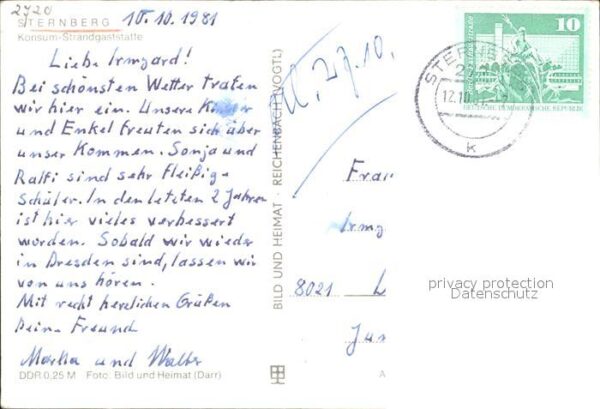 2720
STERNBERG
10.10.1981
Konsum-Strandgaststätte
Liebe Irmgard!
Bei schönsten Wetter trafen
wir hier ein. Unsere Kinder
und Enkel freuten sich über
unser Kommen. Sonja und
Ralfi sind sehr fleißige
Schüler. In den letzten 2 Jahren
ist hier vieles verbessert
worden. Sobald wir wieder
in Dresden sind, lassen wir
von uns hören.
Mit recht herzlichen Grüßen
Deine Freund
Martha und Walter
DDR 0,25 M Foto: Bild und Heimat (Darr)
BILD UND HEIMAT · REICHENBACH (VOGTL)
27.10.
10
DEUTSCHE DEMOKRATISCHE REPUBLIK
STERNBE
12.10
k
Frau
Irmg
8021
privacy protection
Datenschutz
A